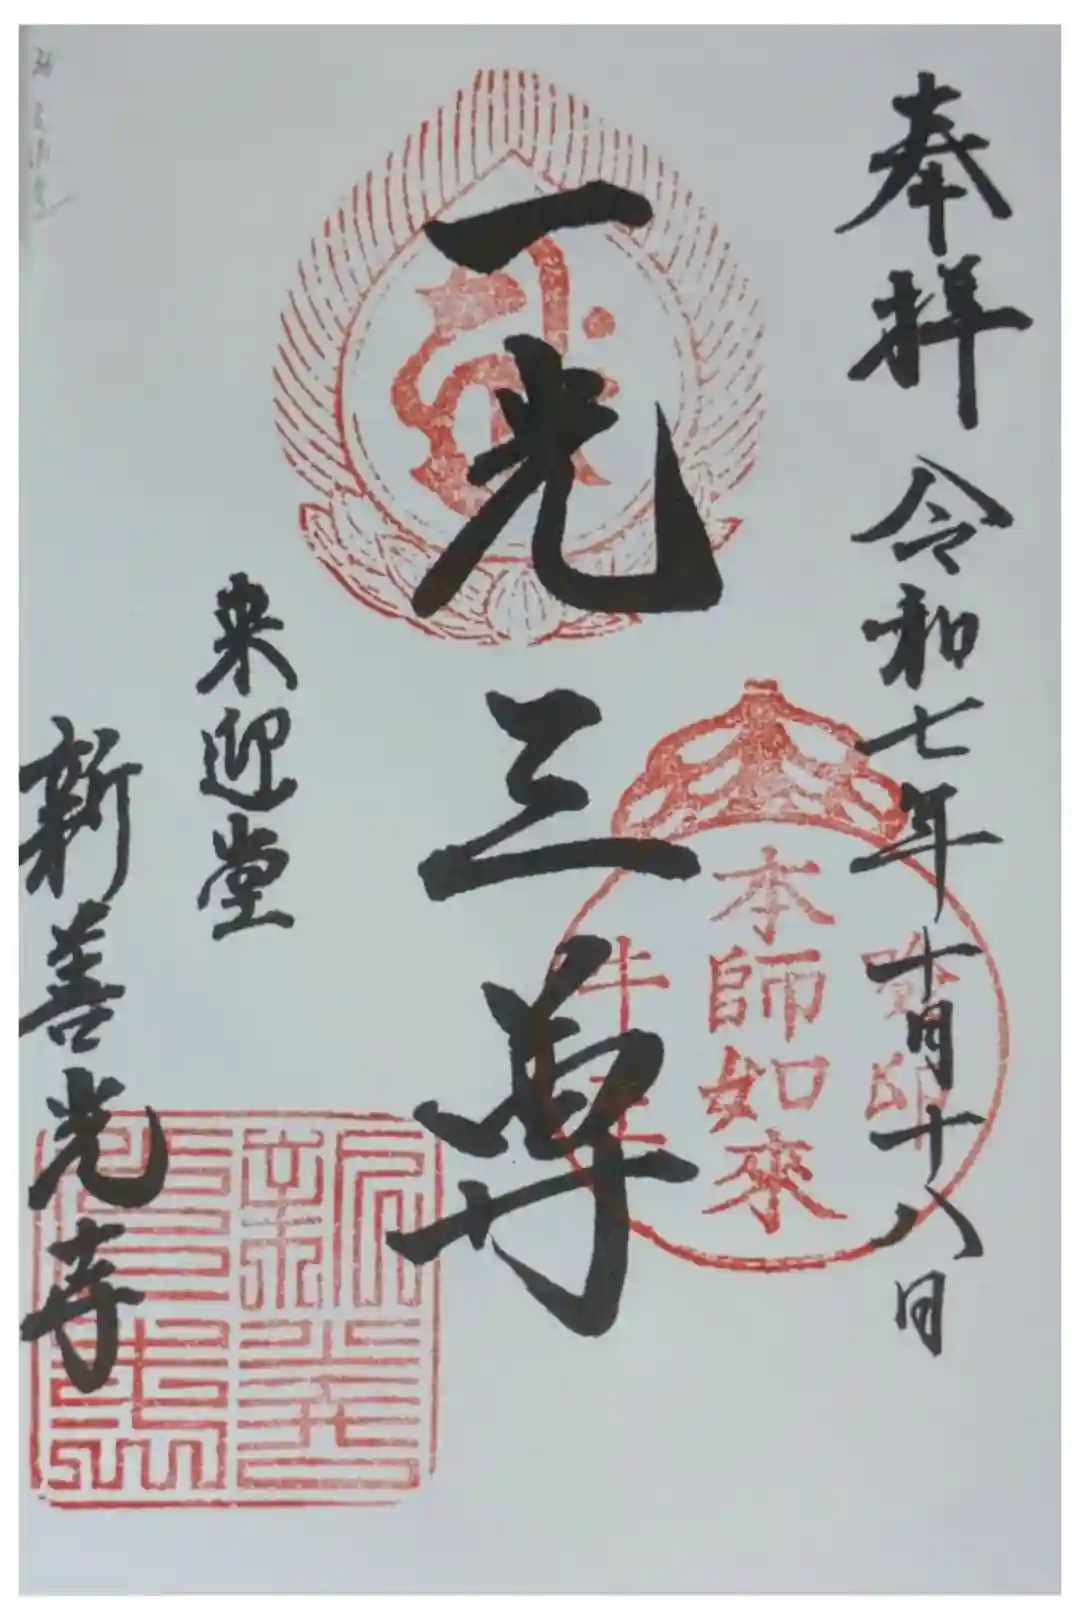 奉拝 令和七年十月十八日
一光三尊
本師如來
来迎堂
新善光寺